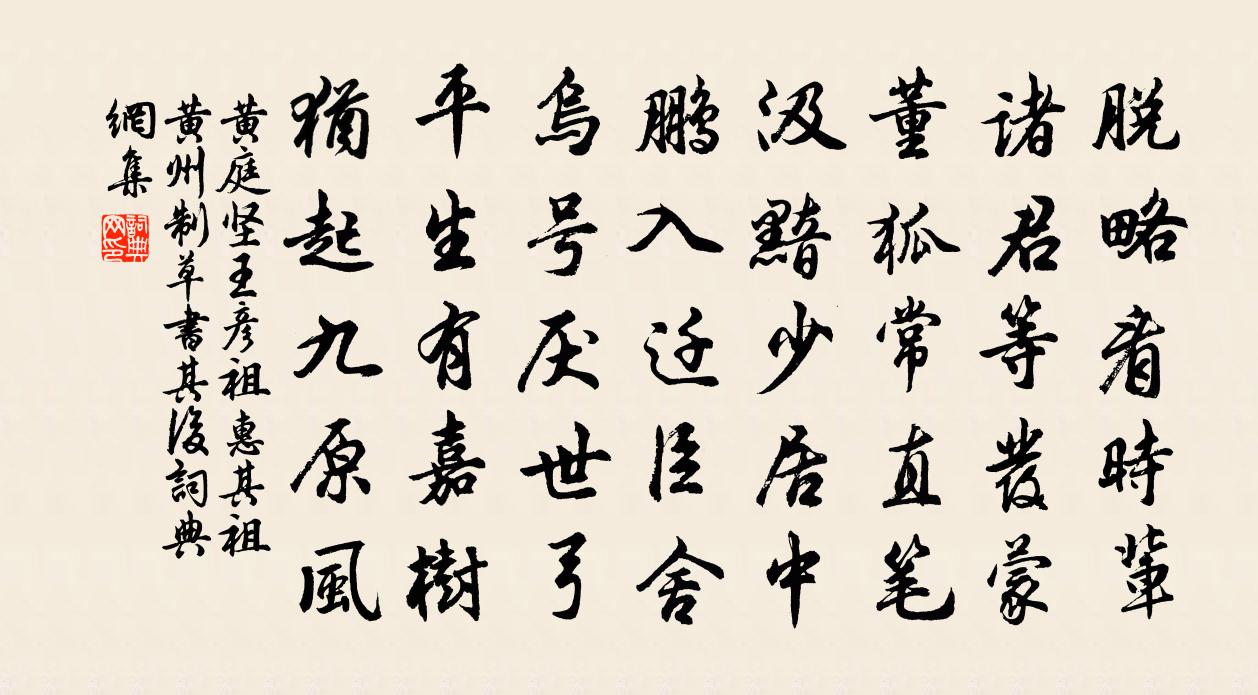 脱略看時輩
诸君等發蒙
董狐常直笔
汲黯少居中
鹏入迁臣舍
烏号厌世弓
平生有嘉樹
猶起九原風
黄庭坚王彦祖惠其祖
黄州制草書其後詞典
網集
詞典网印